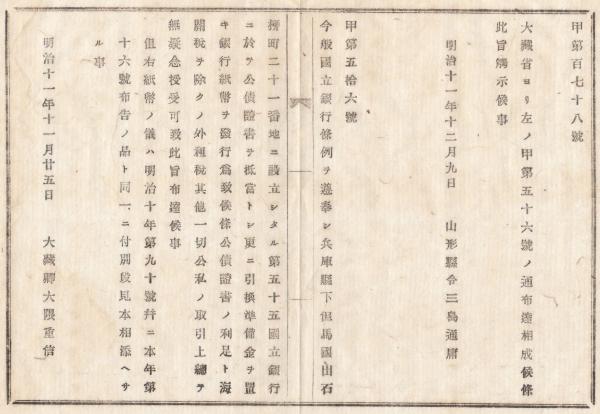 甲第百七十八號
大藏省ヨリ左ノ甲第五十六號ノ通布達相成候條
此旨觸示候事
明治十一年十二月九日 山形縣令三島通庸
甲第五拾六號
今般國立銀行條例ヲ遵奉シ兵庫縣下但馬國出石
擲町二十一番地ニ設立シタル第五十五國立銀行
ニ於テ公債證書ヲ抵當トシ更ニ引換準備金ヲ置
キ銀行紙幣ヲ發行爲致候條公債證書ノ利足ト海
關稅ヲ除クノ外租稅其他一切公私ノ取引上總テ
無疑念授受可致此旨布達候事
但右紙幣ノ儀ハ明治十年第九十號幷ニ本年第
十六號布告ノ品ト同一ニ付別段見本相添ヘサ
ル事
明治十一年十一月廿五日 大藏卿大隈重信